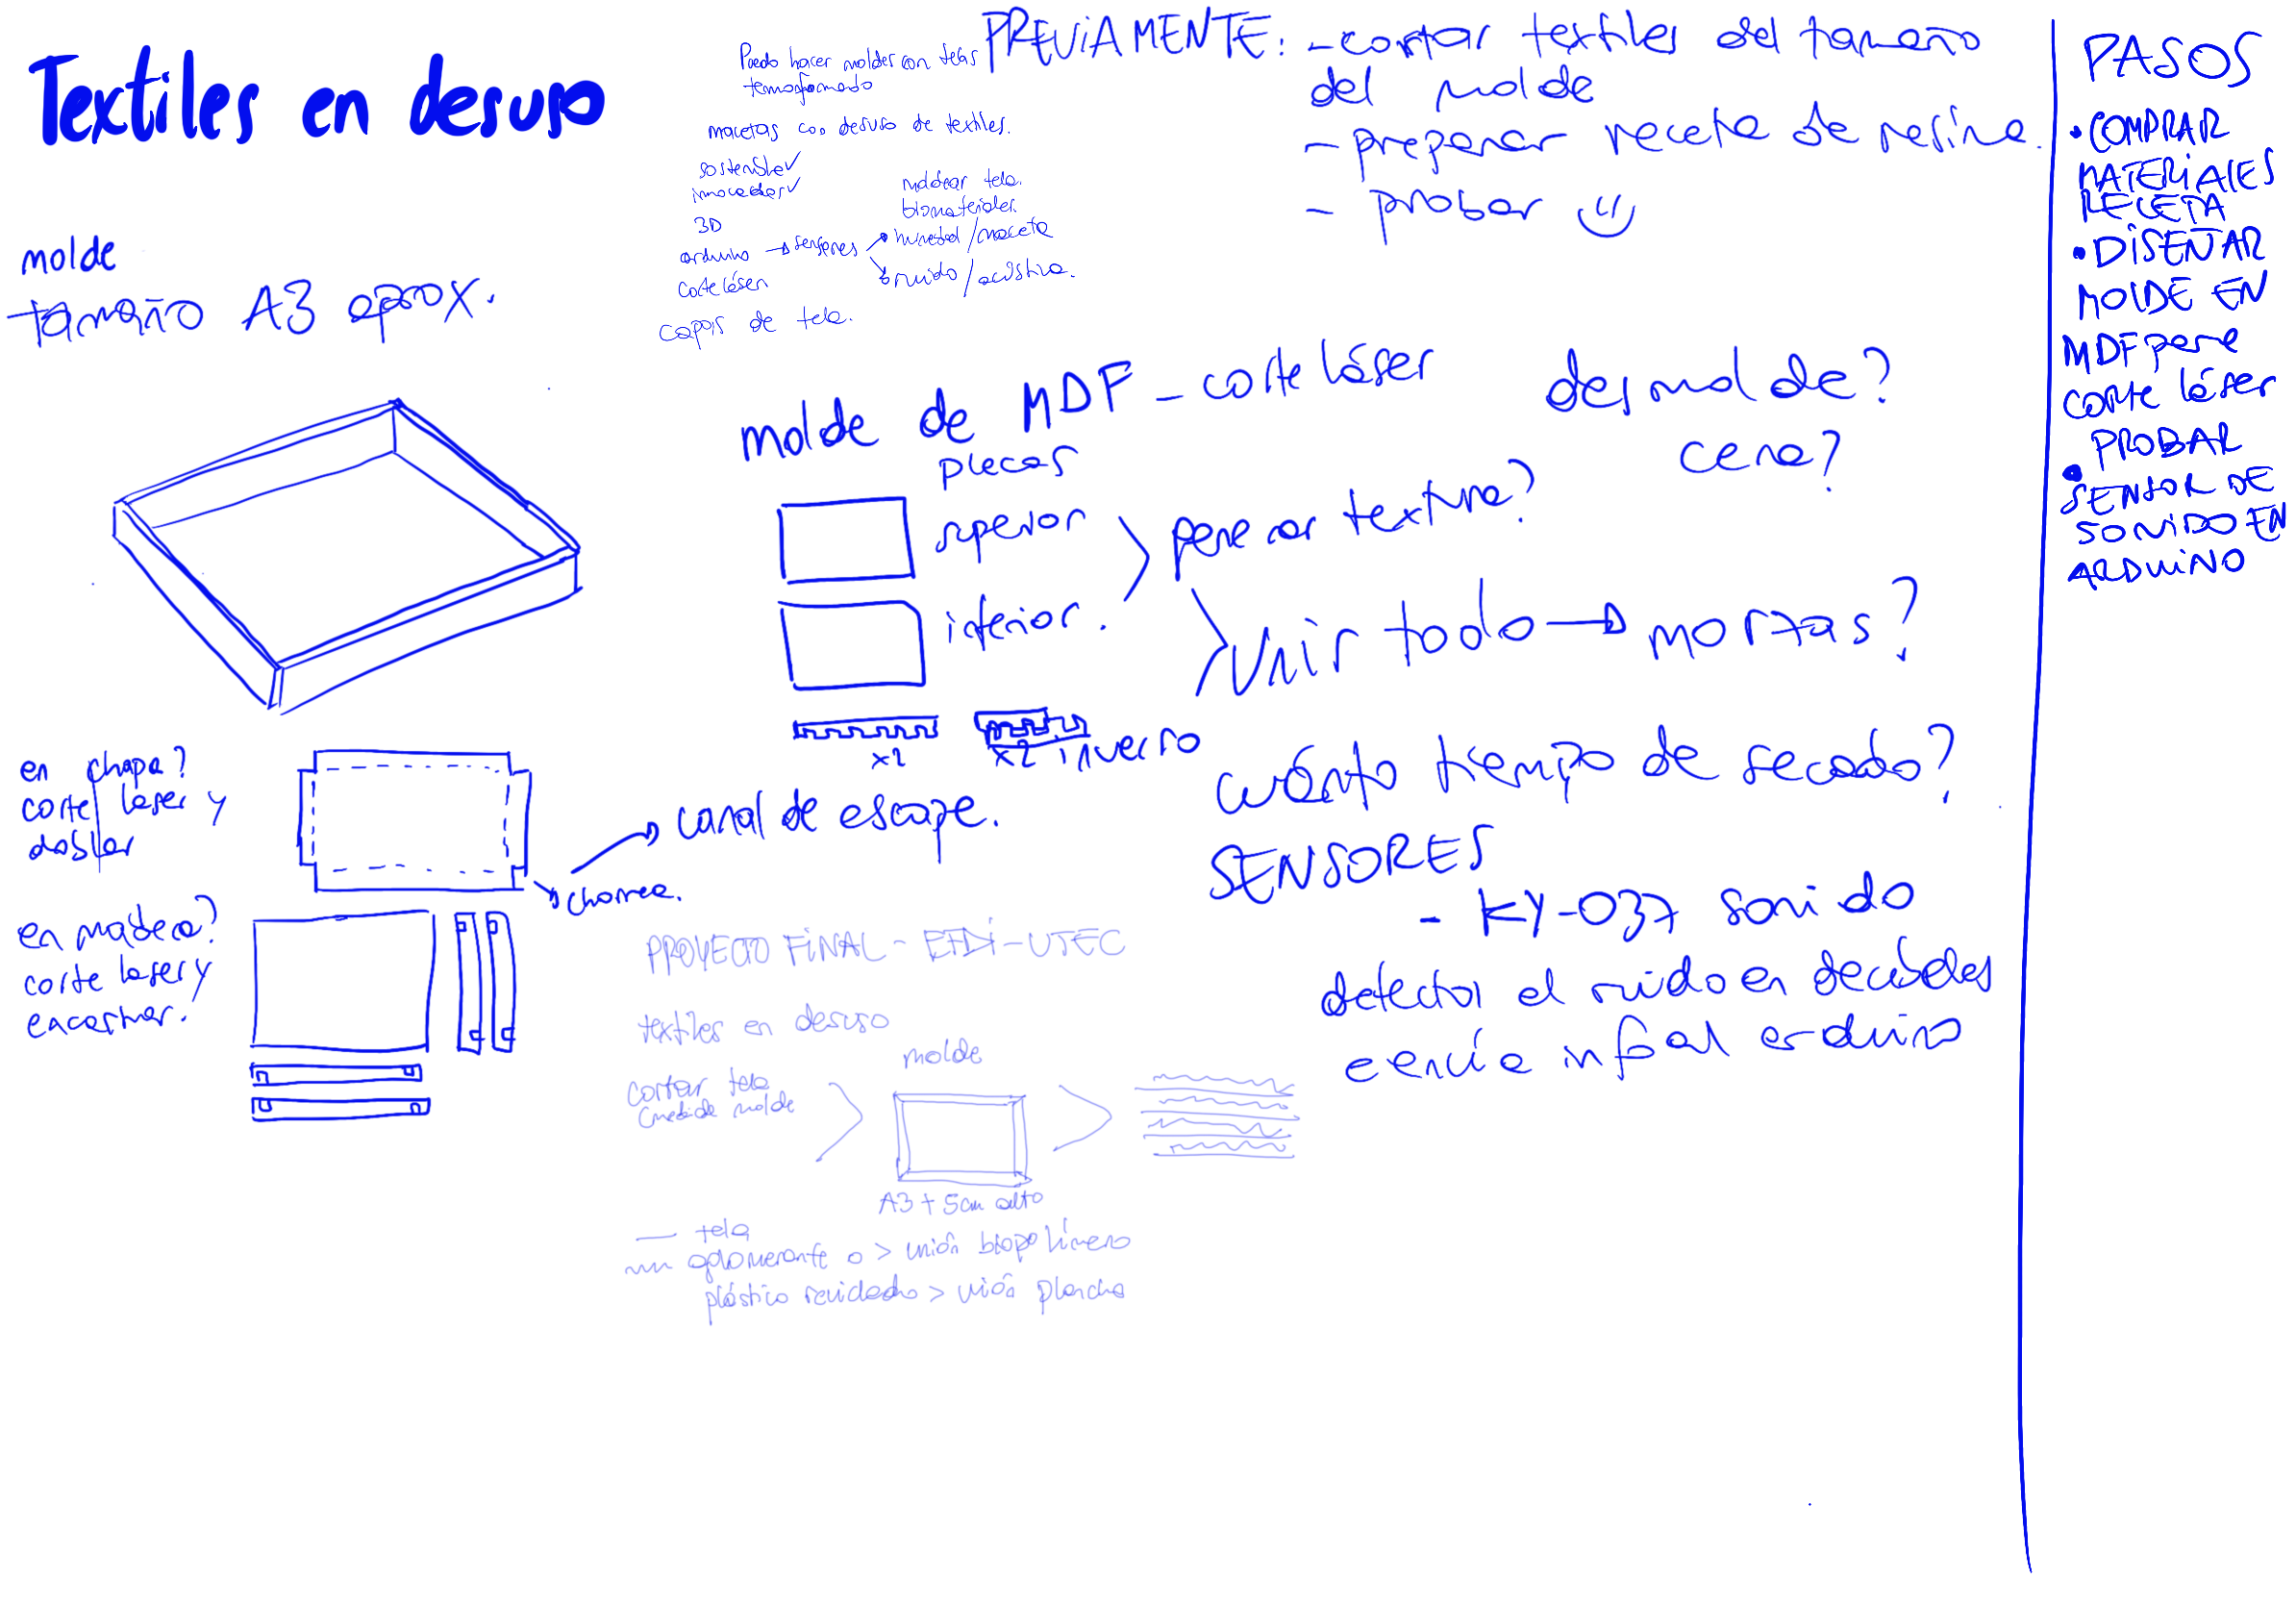 Textiles en desuso
molde
tamaño A3 aprox.
Puedo hacer moldes con telas
termoformado
macetas con desuso de textiles.
sostenible✓
innovador✓
3D
arduino → sensores
humedad/maceta
ruido/acústica.
moldear tela.
biomateriales.
corte láser
capas de tela.
PREVIAMENTE: - cortar textiles del tamaño
del molde
- preparar receta de resina.
- probar
molde de MDF - corte láser
placas
superior
inferior.
para dar textura?
unir todo → mortas?
x2
x2 inverso
desmolde?
cera?
cuánto tiempo de secado?
SENSORES
- KY-037 sonido
detectar el ruido en decibeles
envía info al arduino
en chapa?
corte laser y
doblar
→ canal de escape.
chorrea.
en madera?
corte laser y
encastrar.
PROYECTO FINAL - EFDI - UTEC
textiles en desuso
cortar tela
(medida molde
molde
A3 + 5cm alto
tela
aglomerante o > unión biopolímero
plástico reciclado > unión plancha
PASOS
• COMPRAR
MATERIALES
RECETA
• DISEÑAR
MOLDE EN
MDF para
corte láser
• PROBAR
SENSOR DE
SONIDO EN
ARDUINO